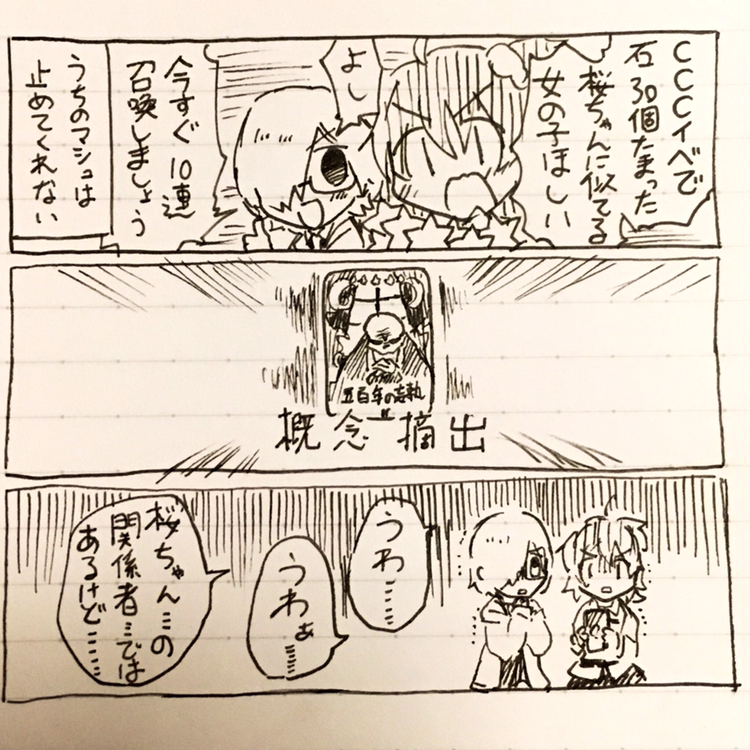 CCCイベで
石30個たまった
桜ちゃんに似てる
女の子ほしい
よし
今すぐ10連
召喚しましょう
うちのマシュは
止めてくれない
五百年の妄執
概念摘出
うわ……
うわぁ……
桜ちゃん…の
関係者…では
あるけど……